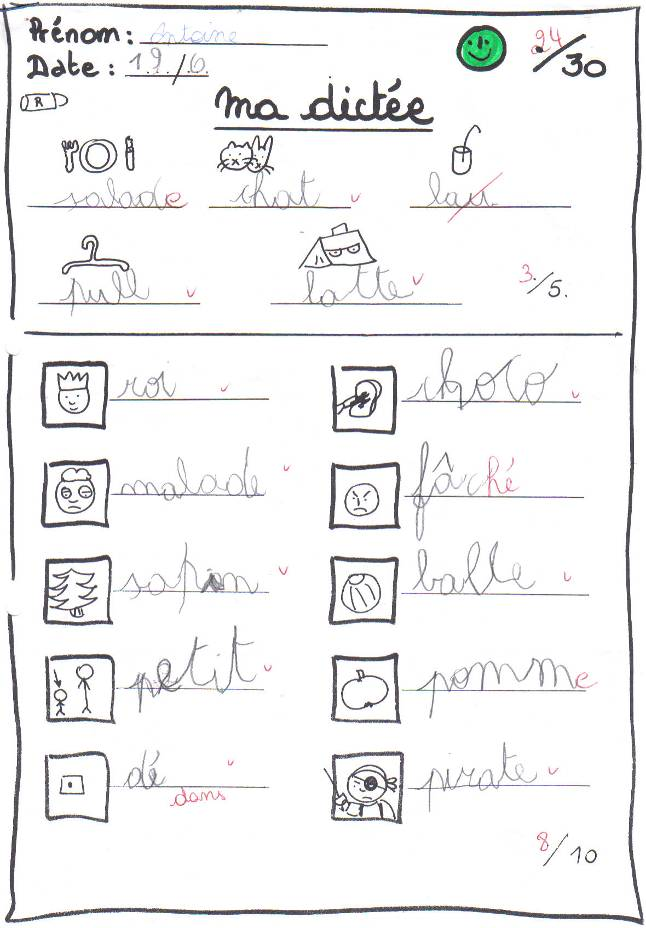 Prénom : Antoine
24/30
Date : 19/6.
R
ma dictée
salade chat lau
pull latte 3/5.
roi choco
malade fâché
sapin balle
petit pomme
dé pirate
dans
8/10